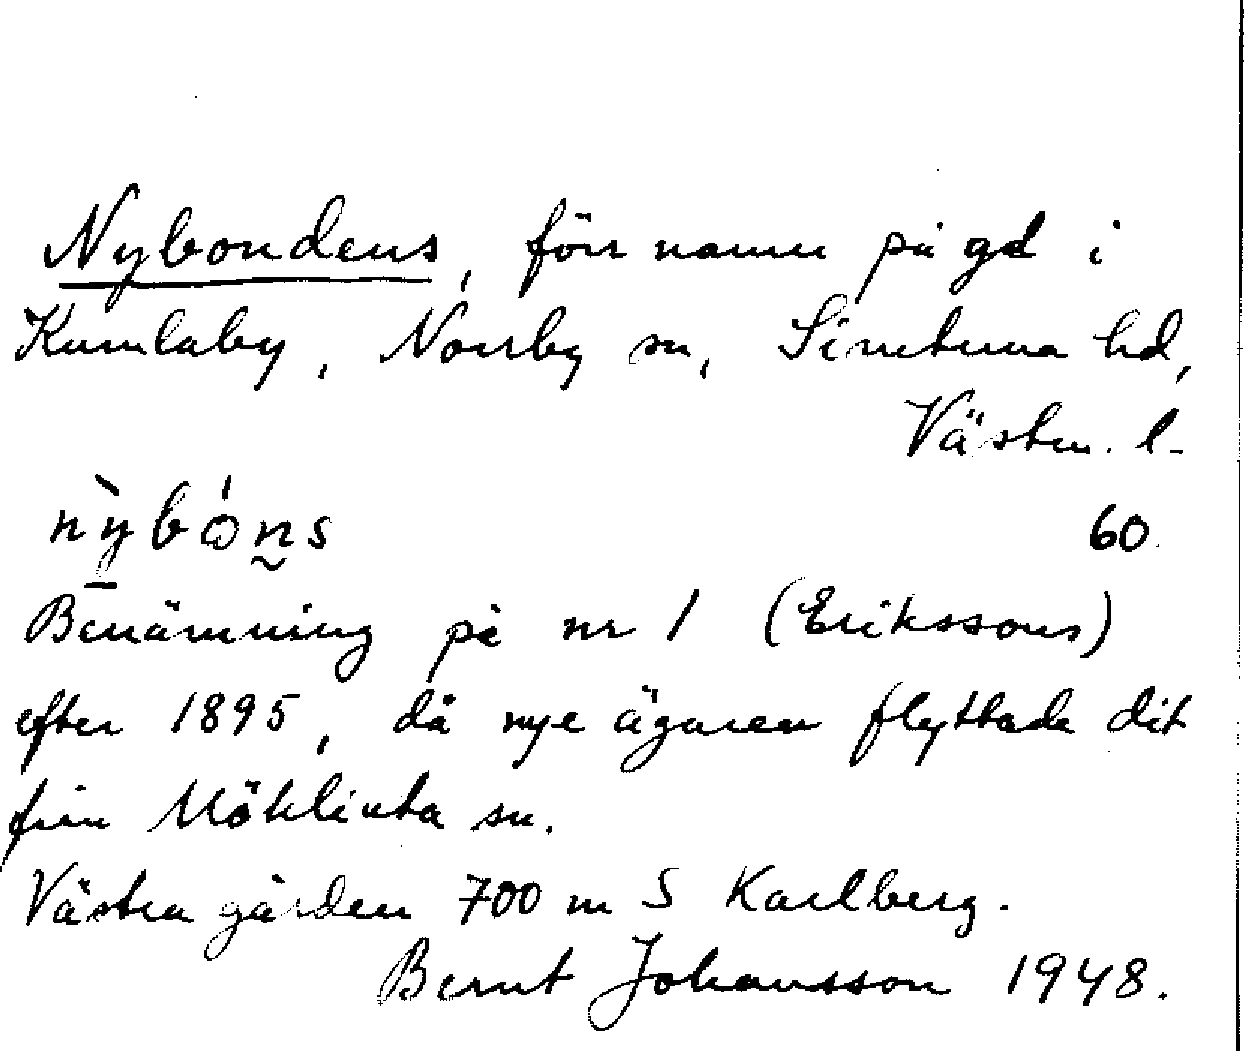 Nybondens, förr namn på gd i
Kumlaby, Norrby sn, Simtuna hd,
Västm. l.
nỳbóns 60.
Benämning på nr 1 (Erikssons)
efter 1895, då nye ägaren flyttade dit
från Möklinta sn.
Västra gården 700 m S Karlberg.
Bernt Johansson 1948.